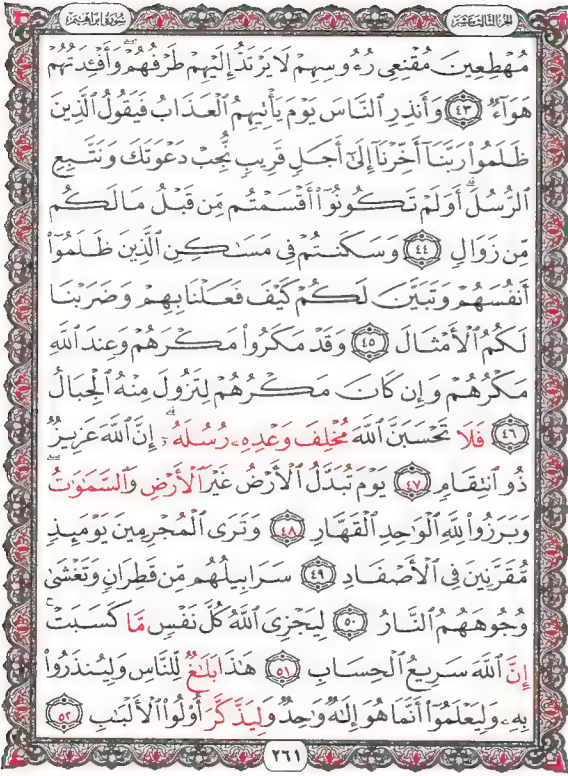 الجزء الثالث عشر
سورة إبراهيم
مُهْطِعِينَ مُقْنِعِى رُءُوسِهِمْ لَا يَرْتَدُّ إِلَيْهِمْ طَرْفُهُمْ وَأَفْـِٔدَتُهُمْ
هَوَآءٌ ٤٣ وَأَنذِرِ ٱلنَّاسَ يَوْمَ يَأْتِيهِمُ ٱلْعَذَابُ فَيَقُولُ ٱلَّذِينَ
ظَلَمُوا۟ رَبَّنَآ أَخِّرْنَآ إِلَىٰٓ أَجَلٍ قَرِيبٍ نُّجِبْ دَعْوَتَكَ وَنَتَّبِعِ
ٱلرُّسُلَ ۗ أَوَلَمْ تَكُونُوٓا۟ أَقْسَمْتُم مِّن قَبْلُ مَا لَكُم
مِّن زَوَالٍ ٤٤ وَسَكَنتُمْ فِى مَسَـٰكِنِ ٱلَّذِينَ ظَلَمُوٓا۟
أَنفُسَهُمْ وَتَبَيَّنَ لَكُمْ كَيْفَ فَعَلْنَا بِهِمْ وَضَرَبْنَا
لَكُمُ ٱلْأَمْثَالَ ٤٥ وَقَدْ مَكَرُوا۟ مَكْرَهُمْ وَعِندَ ٱللَّهِ
مَكْرُهُمْ وَإِن كَانَ مَكْرُهُمْ لِتَزُولَ مِنْهُ ٱلْجِبَالُ
٤٦ فَلَا تَحْسَبَنَّ ٱللَّهَ مُخْلِفَ وَعْدِهِۦ رُسُلَهُۥٓ ۗ إِنَّ ٱللَّهَ عَزِيزٌ
ذُو ٱنتِقَامٍ ٤٧ يَوْمَ تُبَدَّلُ ٱلْأَرْضُ غَيْرَ ٱلْأَرْضِ وَٱلسَّمَـٰوَٰتُ ۖ
وَبَرَزُوا۟ لِلَّهِ ٱلْوَٰحِدِ ٱلْقَهَّارِ ٤٨ وَتَرَى ٱلْمُجْرِمِينَ يَوْمَئِذٍ
مُّقَرَّنِينَ فِى ٱلْأَصْفَادِ ٤٩ سَرَابِيلُهُم مِّن قَطِرَانٍ وَتَغْشَىٰ
وُجُوهَهُمُ ٱلنَّارُ ٥٠ لِيَجْزِىَ ٱللَّهُ كُلَّ نَفْسٍ مَّا كَسَبَتْ ۚ
إِنَّ ٱللَّهَ سَرِيعُ ٱلْحِسَابِ ٥١ هَـٰذَا بَلَـٰغٌ لِّلنَّاسِ وَلِيُنذَرُوا۟
بِهِۦ وَلِيَعْلَمُوٓا۟ أَنَّمَا هُوَ إِلَـٰهٌ وَٰحِدٌ وَلِيَذَّكَّرَ أُو۟لُوا۟ ٱلْأَلْبَـٰبِ ٥٢
٢٦١